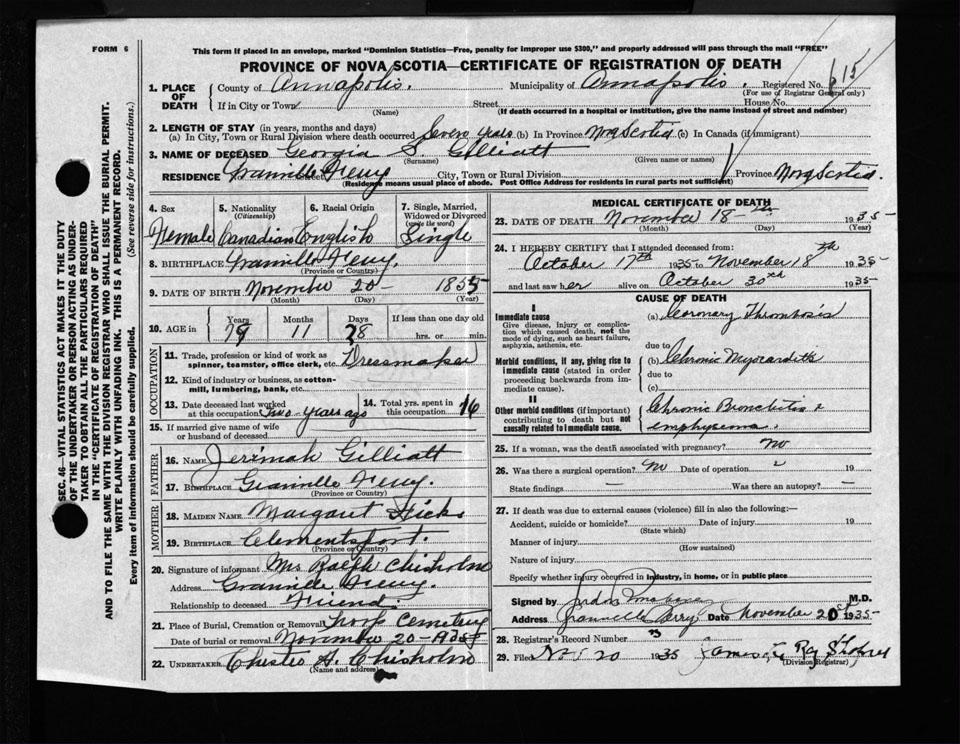 FORM 6
This form if placed in an envelope, marked "Dominion Statistics—Free, penalty for improper use $300," and properly addressed will pass through the mail "FREE"
PROVINCE OF NOVA SCOTIA—CERTIFICATE OF REGISTRATION OF DEATH
1. PLACE OF DEATH County of Annapolis. Municipality of Annapolis. Registered No. 615
(For use of Registrar General only)
If in City or Town Street House No.
(Name) (If death occurred in a hospital or institution, give the name instead of street and number)
2. LENGTH OF STAY (in years, months and days)
(a) In City, Town or Rural Division where death occurred Seven Years (b) In Province Nova Scotia (c) In Canada (if immigrant)
3. NAME OF DECEASED Georgia S. Gilliatt
(Surname) (Given name or names)
RESIDENCE Granville Ferry Street City, Town or Rural Division Province Nova Scotia.
(Residence means usual place of abode. Post Office Address for residents in rural parts not sufficient)
4. Sex 5. Nationality (Citizenship) 6. Racial Origin 7. Single, Married, Widowed or Divorced (write the word)
Female Canadian English Single
8. BIRTHPLACE Granville Ferry.
(Province or Country)
9. DATE OF BIRTH November 20 1855
(Month) (Day) (Year)
10. AGE in Years Months Days If less than one day old
79 11 28 hrs. or min.
OCCUPATION
11. Trade, profession or kind of work as spinner, teamster, office clerk, etc. Dressmaker
12. Kind of industry or business, as cotton-mill, lumbering, bank, etc.
13. Date deceased last worked at this occupation two years ago 14. Total yrs. spent in this occupation 16
15. If married give name of wife or husband of deceased
FATHER
16. NAME Jerimah Gilliatt
17. BIRTHPLACE Granville Ferry.
(Province or Country)
MOTHER
18. MAIDEN NAME Margaret Hicks
19. BIRTHPLACE Clementsport.
(Province or Country)
20. Signature of informant Mrs Ralph Chisholm
Address Granville Ferry.
Relationship to deceased Friend.
21. Place of Burial, Cremation or Removal Troop Cemetery
Date of burial or removal November 20-1935
22. UNDERTAKER Chester A. Chisholm
(Name and address)
MEDICAL CERTIFICATE OF DEATH
23. DATE OF DEATH November 18th 1935
(Month) (Day) (Year)
24. I HEREBY CERTIFY that I attended deceased from:
October 17th 1935 to November 18th 1935
and last saw her alive on October 30th 1935
CAUSE OF DEATH
I
Immediate cause
Give disease, injury or complication which caused death, not the mode of dying, such as heart failure, asphyxia, asthenia, etc.
(a) Coronary Thrombosis
due to
Morbid conditions, if any, giving rise to immediate cause (stated in order proceeding backwards from immediate cause).
(b) Chronic Myocarditis
due to
(c)
II
Other morbid conditions (if important) contributing to death but not causally related to immediate cause.
Chronic Bronchitis &
emphysema.
25. If a woman, was the death associated with pregnancy? No
26. Was there a surgical operation? No Date of operation 19
State findings — Was there an autopsy? —
27. If death was due to external causes (violence) fill in also the following:—
Accident, suicide or homicide? Date of injury 19
(State which)
Manner of injury
(How sustained)
Nature of injury
Specify whether injury occurred in industry, in home, or in public place
Signed by M.D.
Address Granville Ferry Date November 20 1935
28. Registrar's Record Number 73
29. Filed Nov 20 1935
(Division Registrar)
SEC. 46—VITAL STATISTICS ACT MAKES IT THE DUTY
OF THE UNDERTAKER OR PERSON ACTING AS UNDER-
TAKER TO OBTAIN ALL THE PARTICULARS REQUIRED
IN THE "CERTIFICATE OF REGISTRATION OF DEATH"
AND TO FILE THE SAME WITH THE DIVISION REGISTRAR WHO SHALL ISSUE THE BURIAL PERMIT.
WRITE PLAINLY WITH UNFADING INK. THIS IS A PERMANENT RECORD.
Every item of information should be carefully supplied. (See reverse side for instructions.)